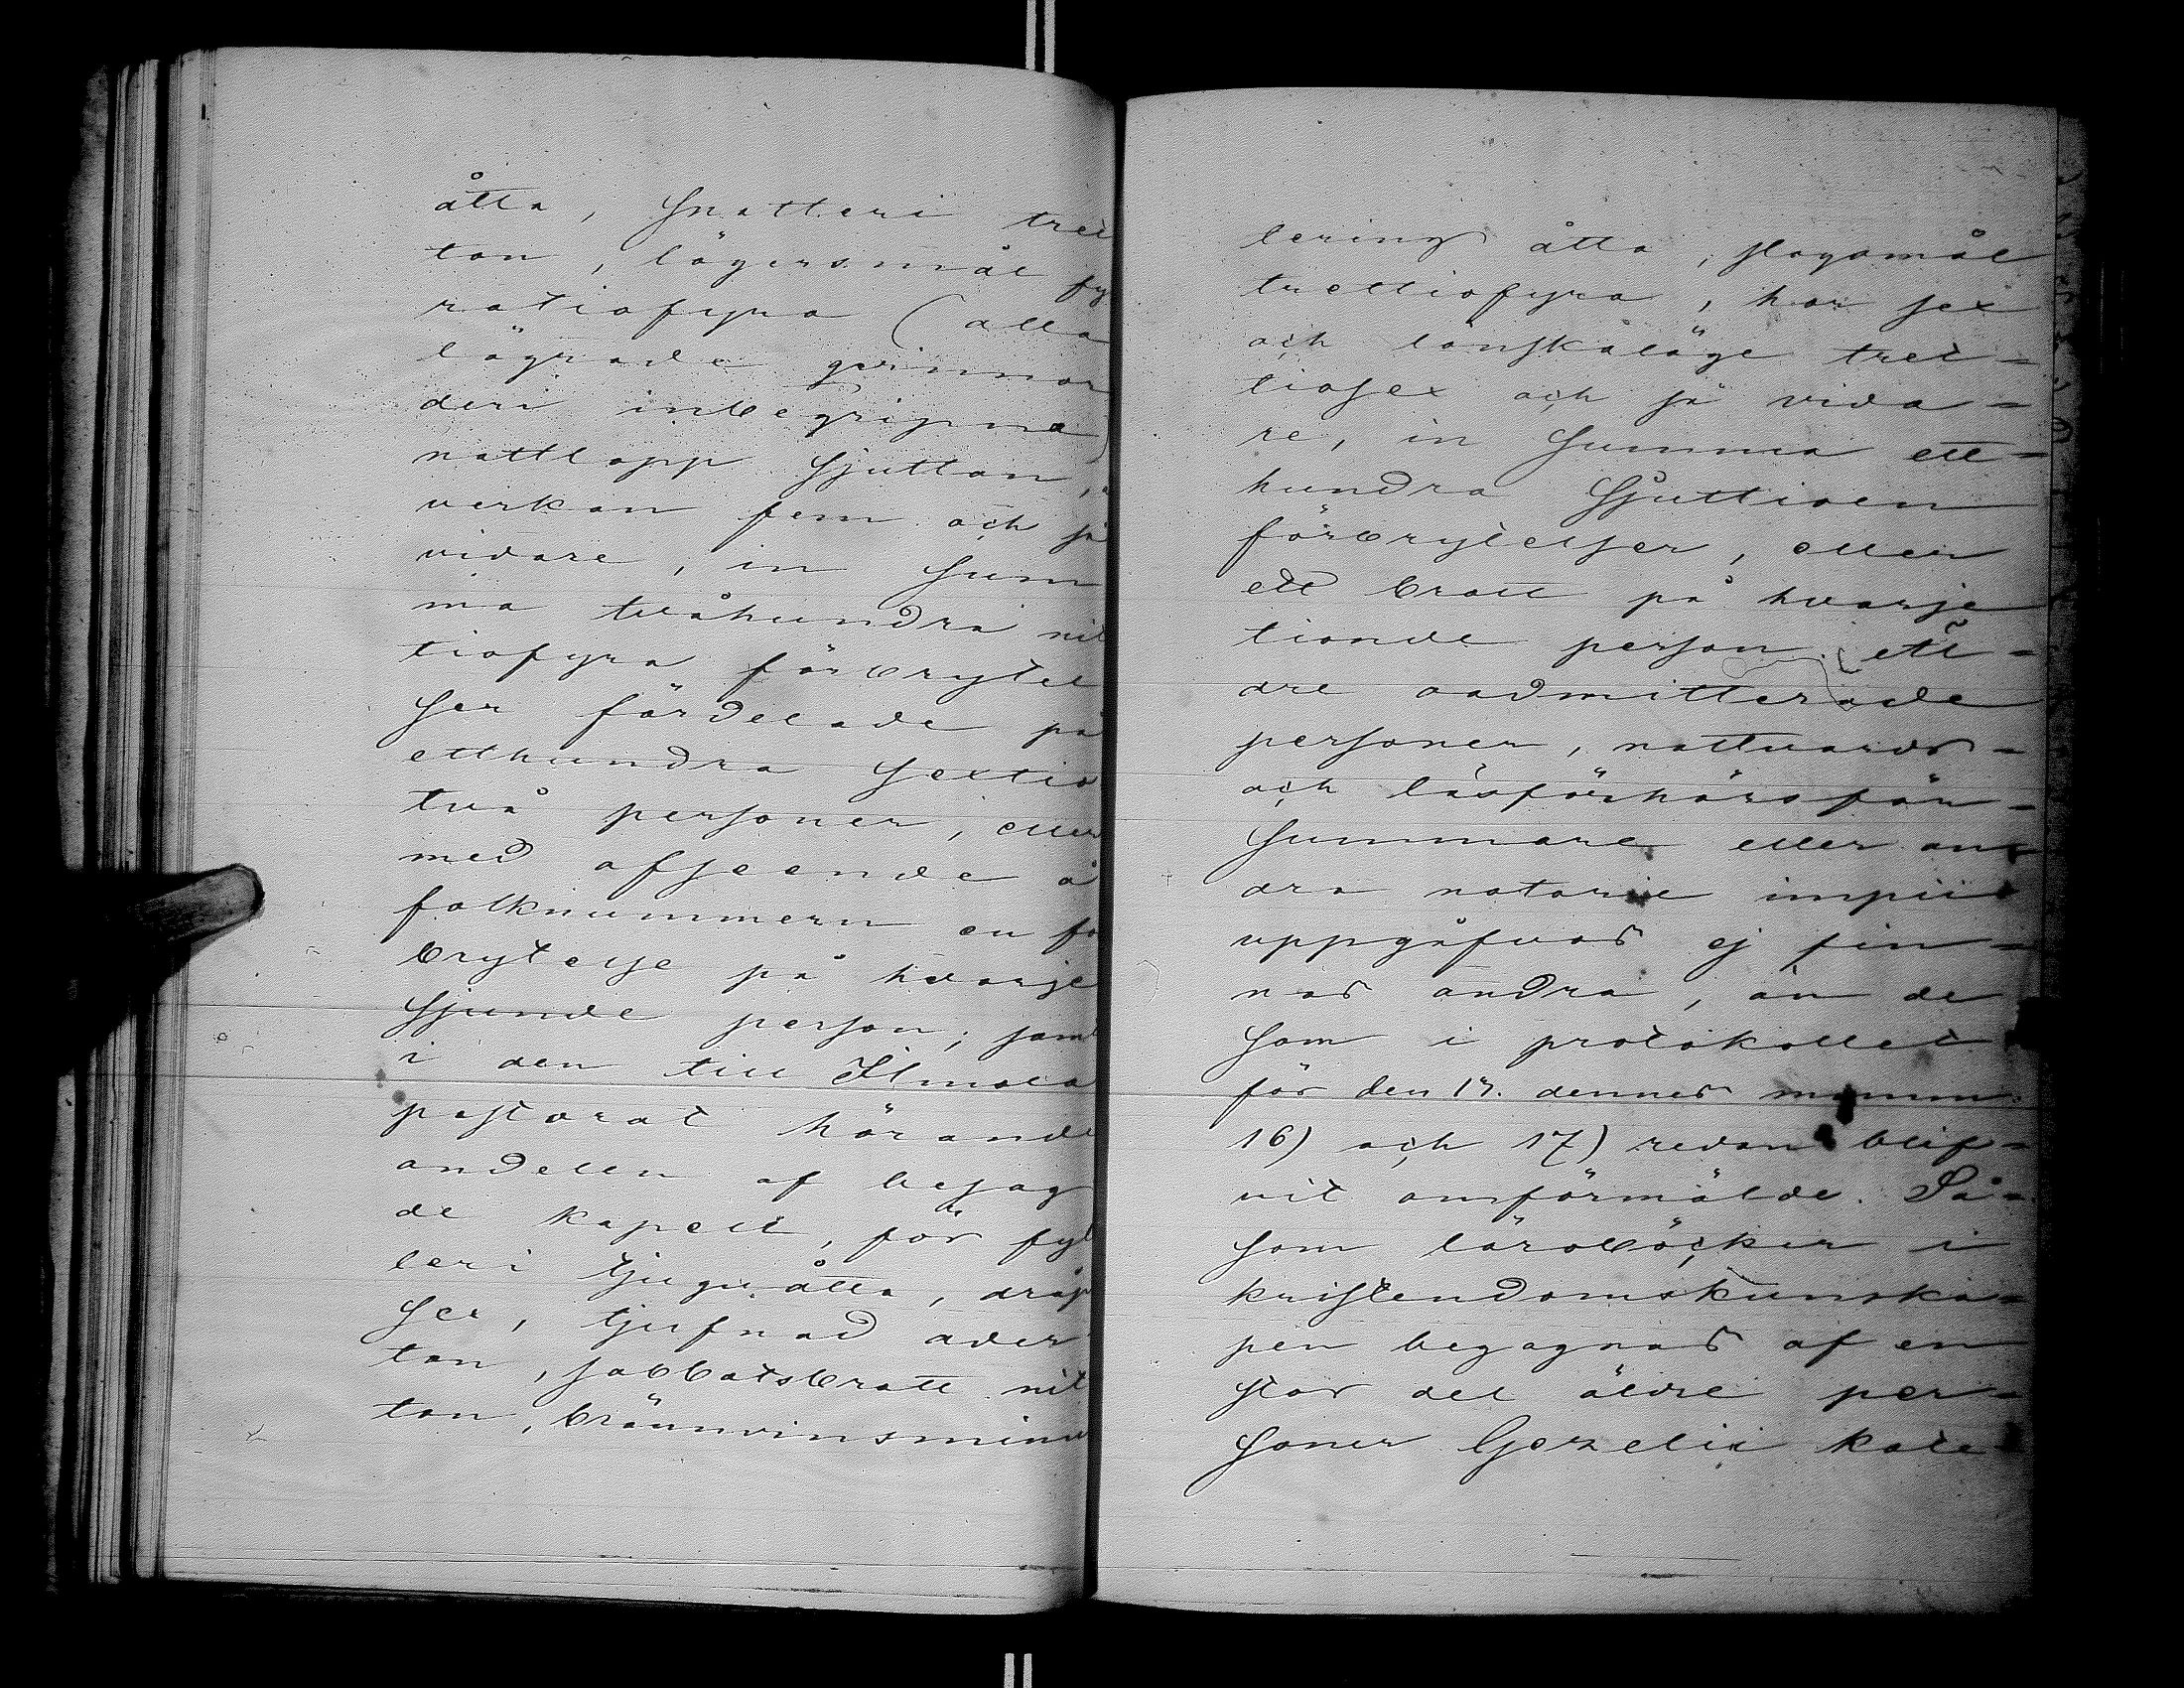 åtta, snatteri tret
ton, lägersmål fy
ratiofyra (alla
lägrade qvinnor
deri inbegripna)
nattlopp sjutton,
verkan fem och så
vidare, in sum
ma tvåhundra nit
tiofyra förbrytel
ser fördelade på
etthundra sextio
två personer, eller
med afseende å
folknummern en fö
brytelse på hvarje
sjunde person; samt
i den till Ilmola
pastorat hörande
andelen af besag
de kapell, för fyl
leri tjuguåtta, dråp
sex, tjufnad ader
ton, sabbatsbrott nit
ton, bränvinsminu
lering åtta, slagsmål
trettiofyra, hor sex
och lönskaläge tret-
tiosex och så vida-
re, in summa ett-
hundra sjuttioen
förbrytelser, eller
ett brott på hvarje
tionde person.
dre oadmitterade
personer, nattvards-
och läsförhörsför-
summare eller an-
dra notorie impii
uppgåfvos ej fin-
nas andra, än de
som i protokollet
för den 17. dennes momm.
16) och 17) redan blif-
vit omförmälde. Så-
som läroböcker i
kristendomskunska-
pen begagnas af en
stor del äldre per-
soner Gezelii kate-